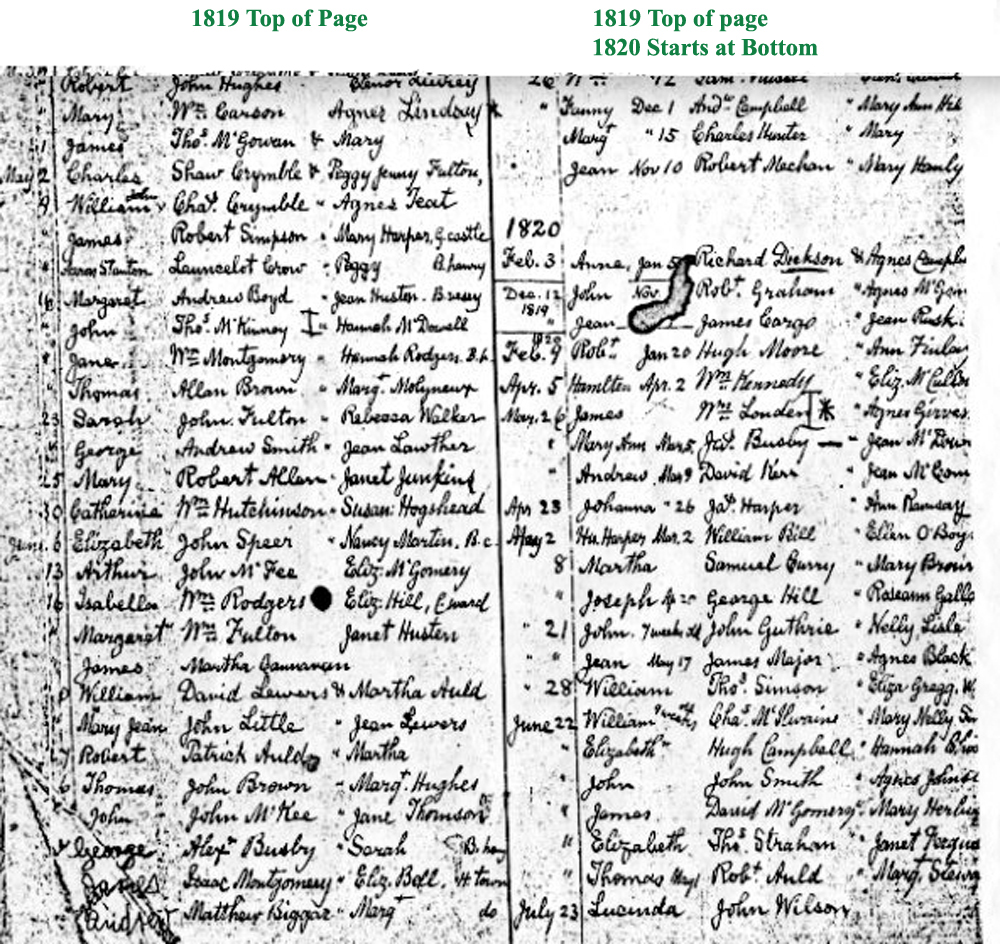 1819 Top of Page
1819 Top of page
1820 Starts at Bottom
Robert John Hughes Elenor
" Mary Wm Carson Agnes Lindsay *
" James Thos. McGowan & Mary
May 2 Charles Shaw Crymble & Peggy Jenny Fulton,
9 William John Chas. Crymble " Agnes Teat
" James Robert Simpson " Mary Harper, G.castle
" Aaron Stanton Launcelot Crow " Peggy B.henry
16 Margaret Andrew Boyd " Jean Huston
" John Thos. McKinney " Hannah McDowell
" Jane Wm Montgomery " Hannah Rodgers. B.h.
" Thomas Allan Brown " Margt. Molyneux
23 Sarah John Fulton " Rebecca Walker
" George Andrew Smith " Jean Lawther
25 Mary Robert Allen " Janet Junkins
30 Catherine Wm Hutchinson " Susan: Hogshead
June. 6 Elizabeth John Speer " Nancy Martin. B.c.
13 Arthur John McFee Eliz. McGomery
16 Isabella Wm Rodgers Eliz. Hill,
" Margaret Wm Fulton Janet Husten
James Martha
William David Lewers & Martha Auld
" Mary Jean John Little " Jean Lewers
Robert Patrick Auld " Martha
Thomas John Brown " Margt. Hughes
John John McKee " Jane Thomson
George Alexr Busby " Sarah
James Isaac Montgomery " Eliz. Bell. H.town
Andrew Matthew Biggar " Margt do
26 Wm 12 Saml. Russell
" Fanny Dec 1 Andw Campbell " Mary Ann
Margt " 15 Charles Hunter " Mary
" Jean Nov 10 Robert Mechan " Mary Hanly
1820
Feb. 3 Anne, Jan 5 Richard Dickson & Agnes
Dec. 12 1819 John Nov. Robt. Graham " Agnes
Jean James Cargo " Jean Rusk.
1820 Feb. 9 Robt. Jan 20 Hugh Moore " Ann Finlay
Apr. 5 Hamilton Apr. 2 Wm Kennedy " Eliz. McCullo
Mar. 26 James Wm Louden * " Agnes Girves
" Mary Ann Mar 5. Jas. Busby — " Jean
" Andrew. Mar 9 David Kerr " Jean
Apr 23 Johanna " 26 Jas. Harper " Ann Ramsay
May 2 Hu. Harper Mar. 2 William Bill " Ellen O'Boy
8 Martha Samuel Curry " Mary Brown
" Joseph George Hill " Roseann
" 21 John. 7 weeks old John Guthrie " Nelly Lisle
" " Jean May 17 James Major " Agnes Black
" 28 William Thos. Simson " Eliza Gregg.
June 22 William Chas. McIlwaine " Mary Nelly
" Elizabeth " Hugh Campbell " Hannah
" John John Smith " Agnes Johnst
" James David McGomery " Mary
" Elizabeth Thos. Strahan " Janet
" Thomas May 1 Robt. Auld " Margt.
July 23 Lucinda John Wilson